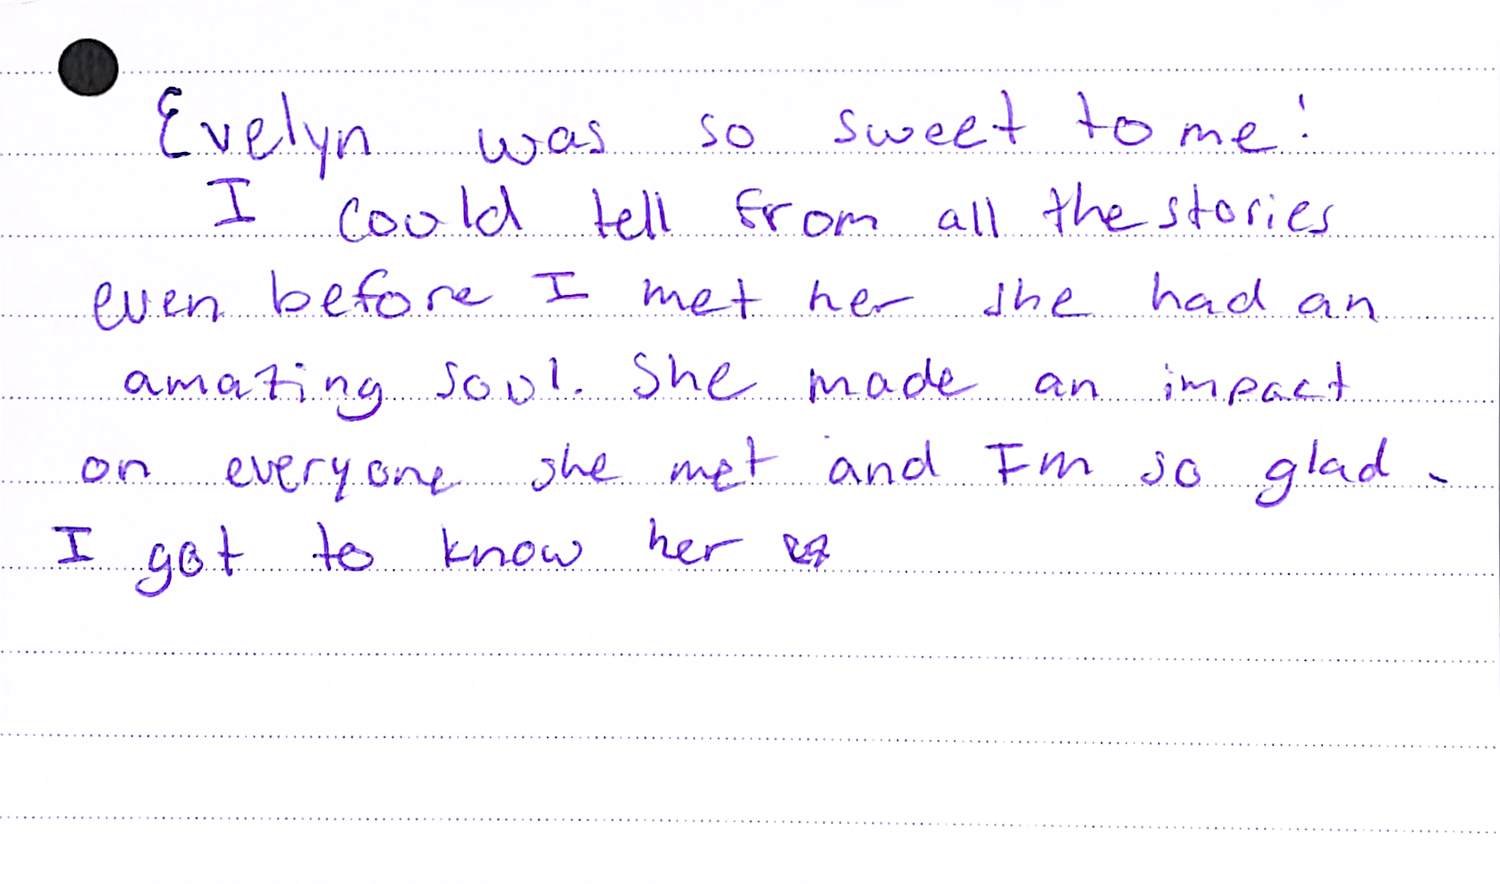 Evelyn was so sweet to me!
I could tell from all the stories
even before I met her she had an
amazing soul. She made an impact
on everyone she met and Im so glad
I got to know her